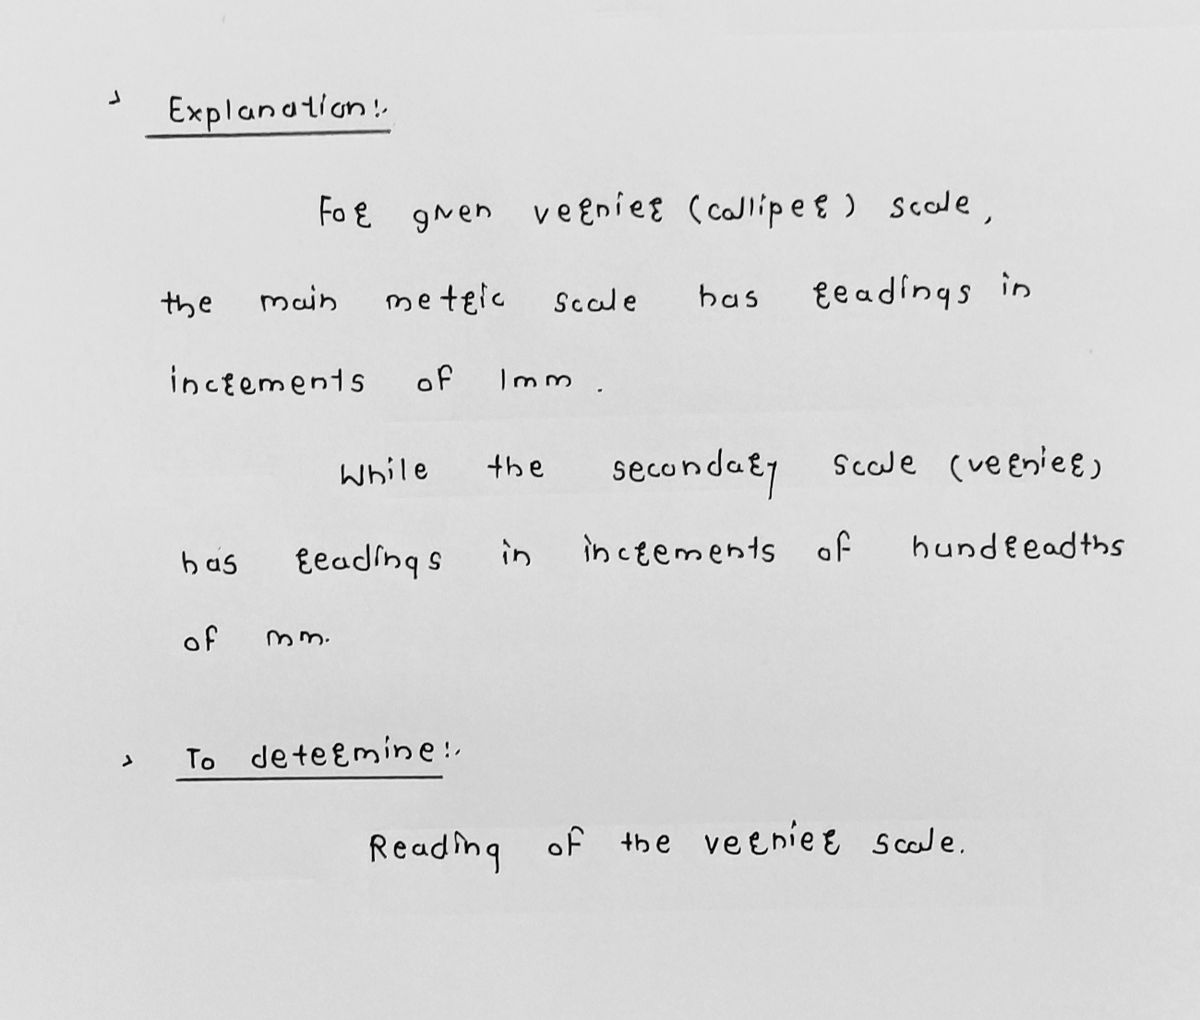 Explanation:
For given vernier (calliper) scale,
the main metric scale has readings in
increments of 1mm.
While the secondary scale (vernier)
has readings in increments of hundreadths
of mm.
To determine:
Reading of the vernier scale.